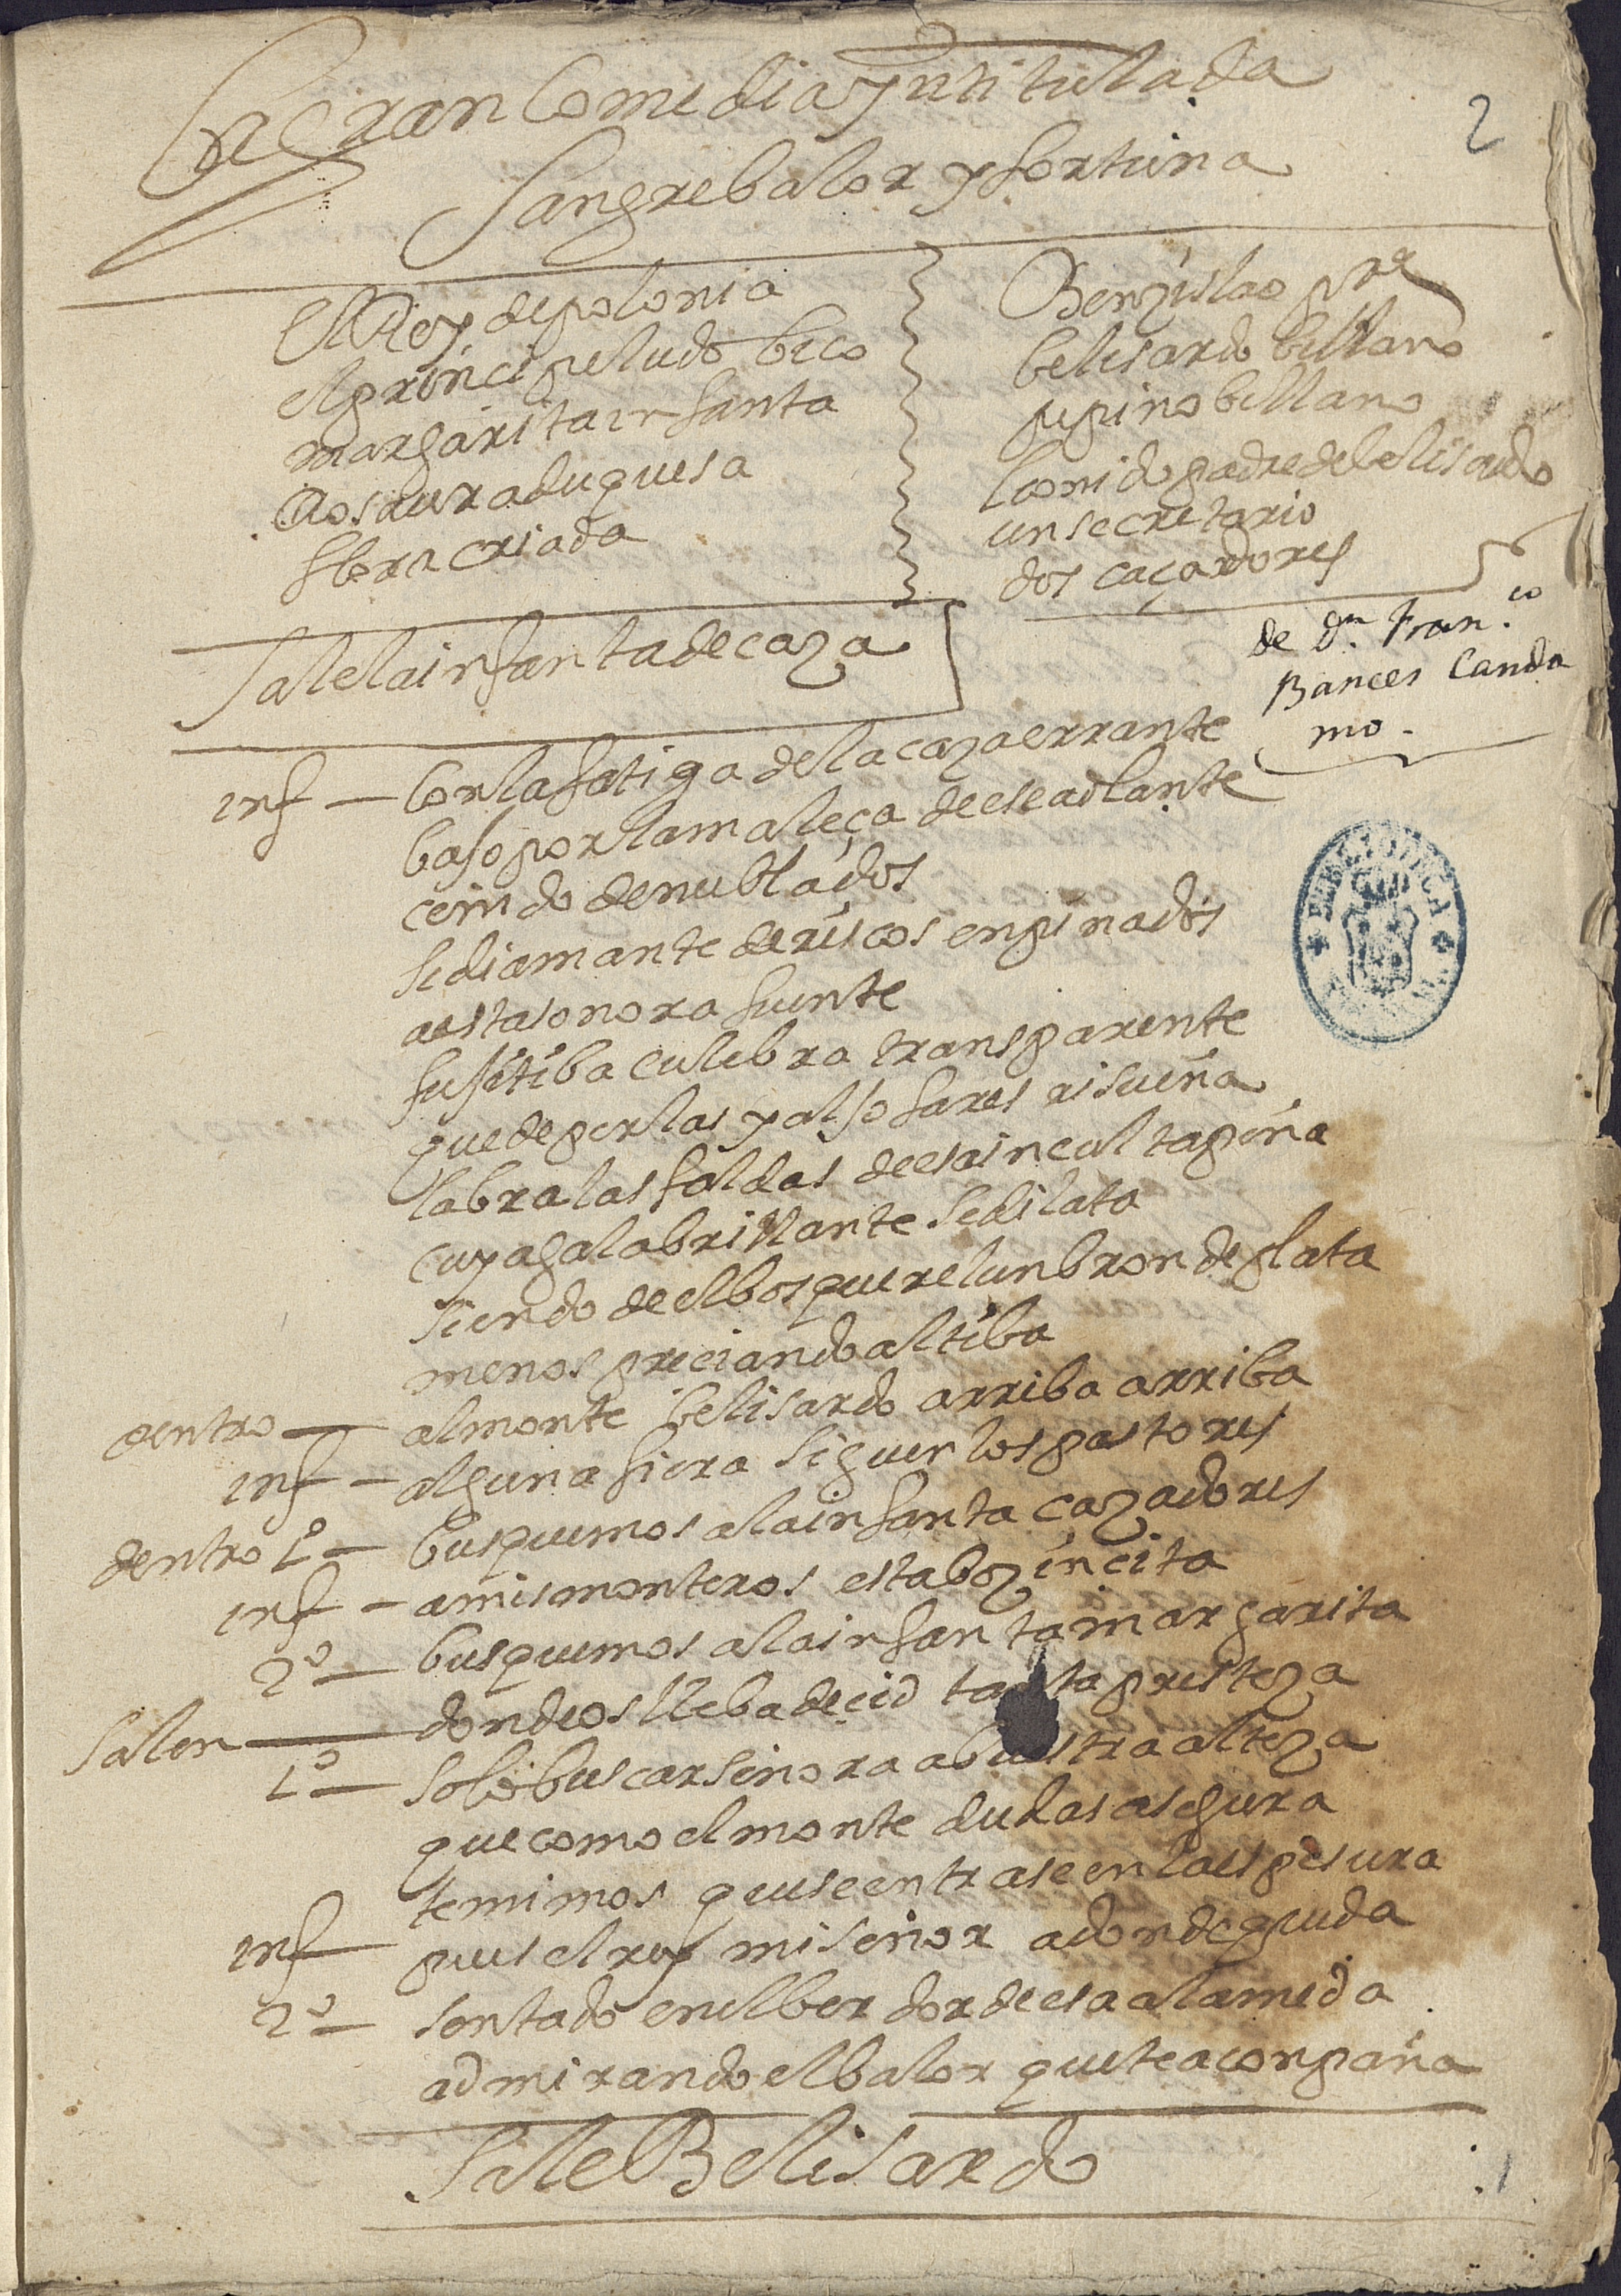 La Gran Comedia yntitulada
2
Sangre balor y fortuna
El Rey de polonia
el principe ludobico
margarita infanta
Rosaura duquesa
flora criada
Benzislao
belisardo billano
pepino billano
leonido padre de belisardo
un secretario
dos caçadores
de Dn. Fran.co
Bances Canda
mo.
Sale la infanta de caza
inf — Con la fatiga de la caza errante
bajo por la maleça de ese adlante
cenido de nublados
si diamante de riscos enpinados
a esta sonora fuente
fujitiba culebra transparente
que de perlas y aljofares risueña
labra las faldas de esa inculta peña
cuya gala brillante se dilata
siendo de el bosque relunbron de plata
menospreciando altiba
dentro — al monte belisardo arriba arriba
inf — alguna fiera siguen los pastores
dentro 1º — busquemos a la infanta cazadores
inf — a mis monteros esta boz incita
2º — busquemos a la infanta margarita
Salen — donde os lleba decid tanta presteza
1º — solo buscar señora a buestra alteza
que como el monte dudas asegura
temimos que se entrase en la espesura
inf — pues el rey mi señor adonde queda
2º — sentado en el berdor de esa alameda
admirando el balor que te aconpaña
Sale Belisardo
1
BIBLIOTECA